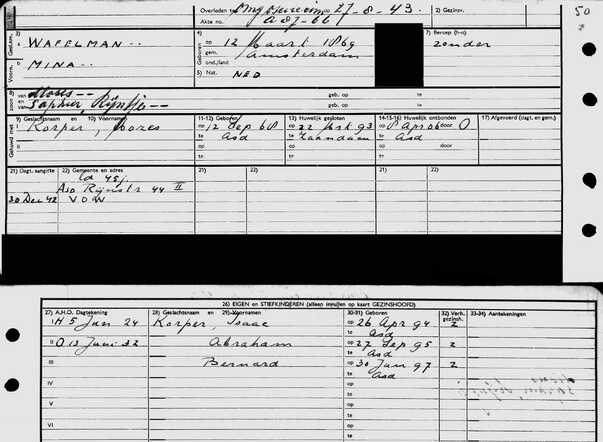 Overleden te 27-8-43. 2) Gezinsv.
Akte no. A 87-66
3) Geslsn. a WAFELMAN --
Voorn. b MINA --
4) Geboren op 12 Maart 1869
gem. Amsterdam
ond./land
5) Nat. NED
7) Beroep (h-o)
zonder
50
8) zoon van Mozes -- geb. op te
en van Saphier, Rijntje -- geb. op te
9) Geslachtsnaam en 10) Voornamen 11-12) Geboren 13) Huwelijk gesloten 14-15-16) Huwelijk ontbonden 17) Afgevoerd (dagt. en gem.)
Gehuwd met
I Korper, Mozes op 12 Sep 68 op 22 Mrt 93 op 8 Apr 06 door O
te Asd te Zaandam te Asd
op op op door
te te te
21) Dagt. aangifte 22) Gemeente en adres 21) 22) 21) 22)
Asd Rijnstr 44 II
30 Dec 42 VOW
26) EIGEN en STIEFKINDEREN (alleen invullen op kaart GEZINSHOOFD)
27) A.H.O. Dagtekening 28) Geslachtsnaam en 29) Voornamen 30-31) Geboren 32) Verh. gezinsh. 33-34) Aantekeningen
I H 5 Jan 24 Korper, Isaac op 26 Apr 94 2
te Asd
II O 13 Juni 32 Abraham op 27 Sep 95 2
te Asd
III Bernard op 30 Jan 97 2
te Asd
IV op
te
V op
te
VI op
te